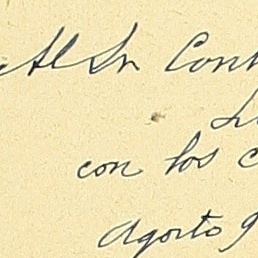 Al Sr Con
con los
Agosto 9